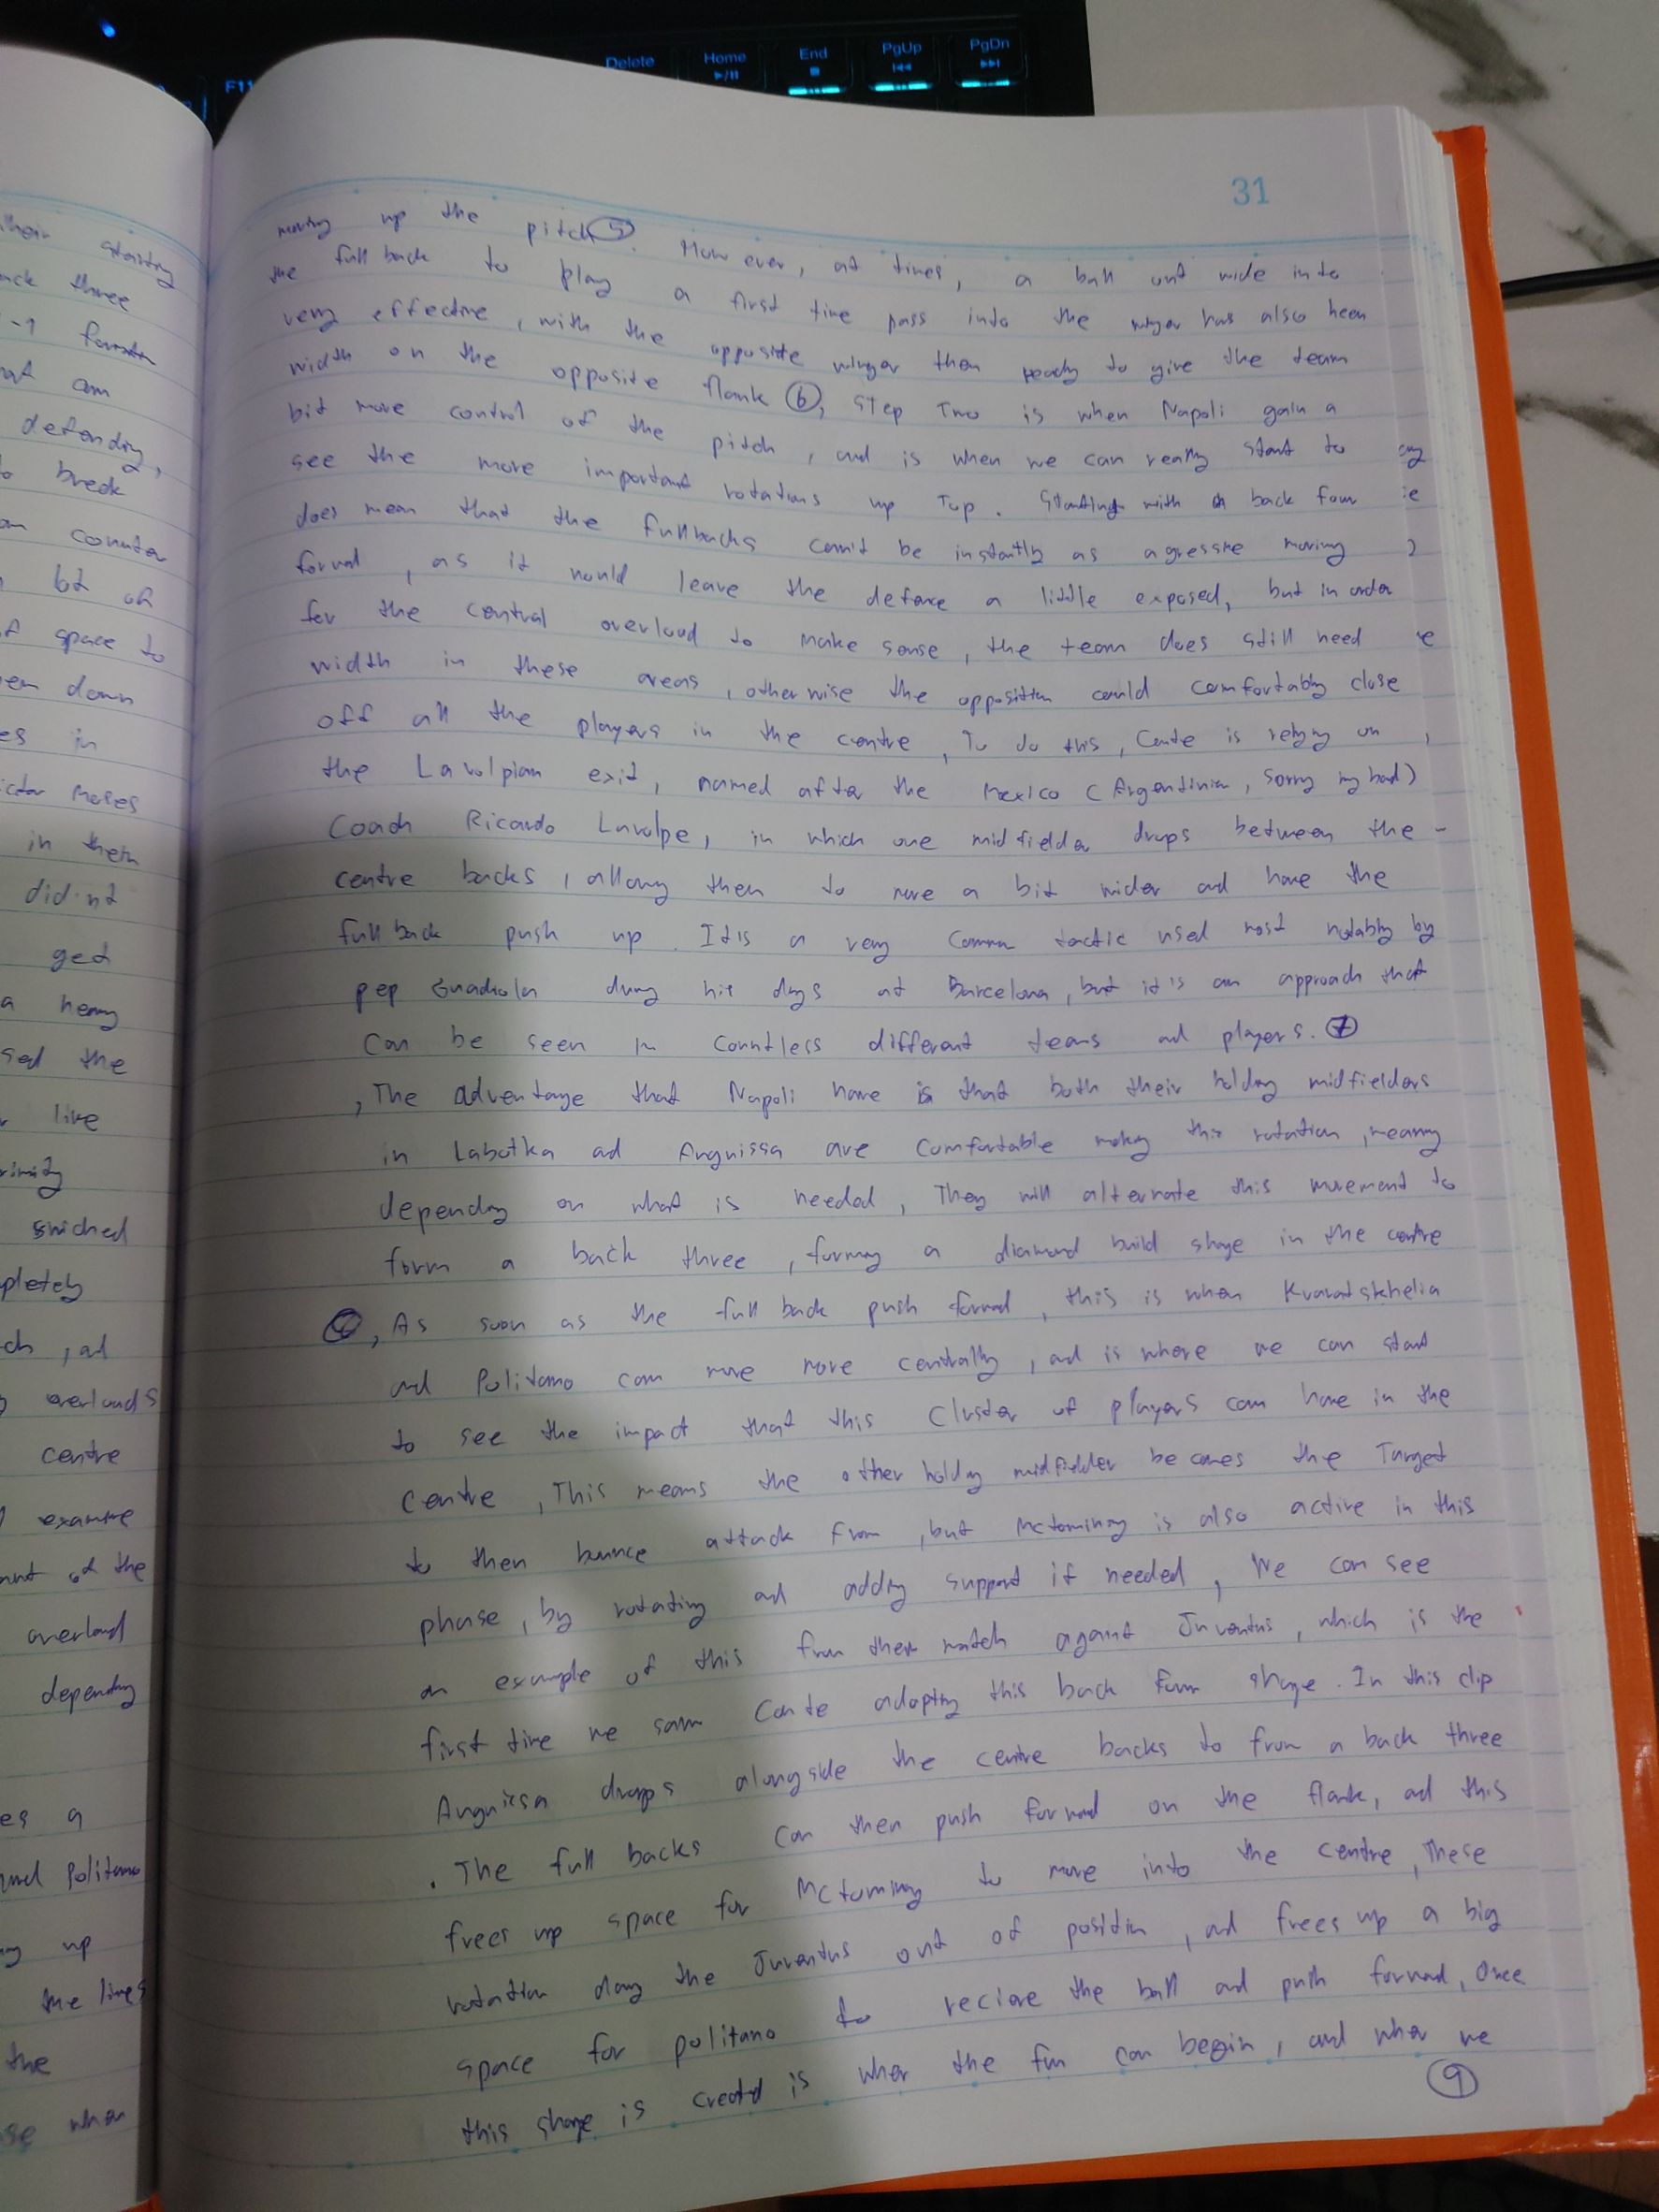 Delete Home End PgUp PgDn
F11
31
moving up the pitch (5). However, at times, a ball out wide into
the full back to play a first time pass into the winger has also been
very effective, with the opposite winger then ready to give the team
width on the opposite flank (6), Step Two is when Napoli gain a
bit more control of the pitch, and is when we can really start to
see the more important rotations up Top. Starting with a back four
does mean that the fullbacks can't be instantly as agressive moving
forwad, as it would leave the defence a little exposed, but in order
for the central overload to make sense, the team does still need
width in these areas, otherwise the opposition could comfortably close
off all the players in the centre, To do this, Conte is relying on
the Lavolpian exit, named after the Mexico (Argentinian, sorry my bad)
Coach Ricardo Lavolpe, in which one midfielder drops between the -
centre backs, allowing them to move a bit wider and have the
full back push up. It is a very common tactic used most notably by
pep Guadiola during his days at Barcelona, but it is an approach that
can be seen in countless different teams and players. (7)
, The adventage that Napoli have is that both their holding midfielders
in Labotka ad Anguissa are comfortable making this rotation, meaning
depending on what is needed, They will alternate this movement to
form a back three, forming a diamond build shape in the centre
, As soon as the full back push forwad, this is when Kvaratskhelia
and Politano can move more centrally, ad is where we can start
to see the impact that this cluster of players can have in the
centre, This means the other holding midfielder becomes the Target
to then bounce attack from, but Mctominay is also active in this
phase, by rotating ad adding support if needed, We can see
an example of this from their match against Juventus, which is the
first time we saw Conte adopting this back four shape. In this clip
Anguissa drops alongside the centre backs to from a back three
. The full backs can then push forwad on the flank, ad this
frees up space for Mctominay to move into the centre, These
rotation drag the Juventus out of position, ad frees up a big
space for politano to recieve the ball ad push forwad, Once
this shape is created is when the fun can begin, and when we
(9)
their starting
back three
-1
defending,
break
counter
lot of
of space to
down
in
Moses
in them
did.nt
get
a heavy
the
like
swiched
pletely
ch, ad
overloads
centre
examine
of the
overload
depending
es a
and Politano
up
the lines
the
when